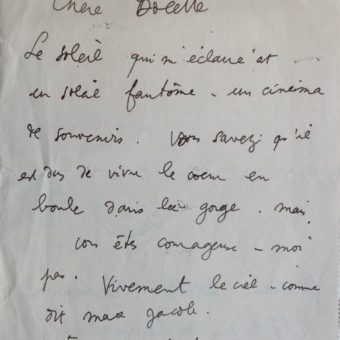 Chère
Le soleil qui m'éclaire est
un soleil fantôme - un cinéma
de souvenirs. Vous savez qu'il
est dur de vivre le coeur en
boule dans la gorge. mais
vous êtes courageuse - moi
pas. Vivement le ciel - comme
dit max jacob.